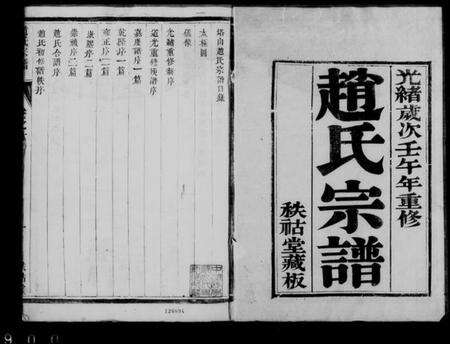 光緒歲次壬午年重修
趙氏宗譜
秩祜堂藏板
趙氏宗譜目錄
太極圖
像
光緒重修新序
道光重修族譜序
嘉慶譜序一篇
乾隆序一篇
雍正序一篇
康熙序二篇
趙氏合譜序
趙氏初修譜原序
126694
900